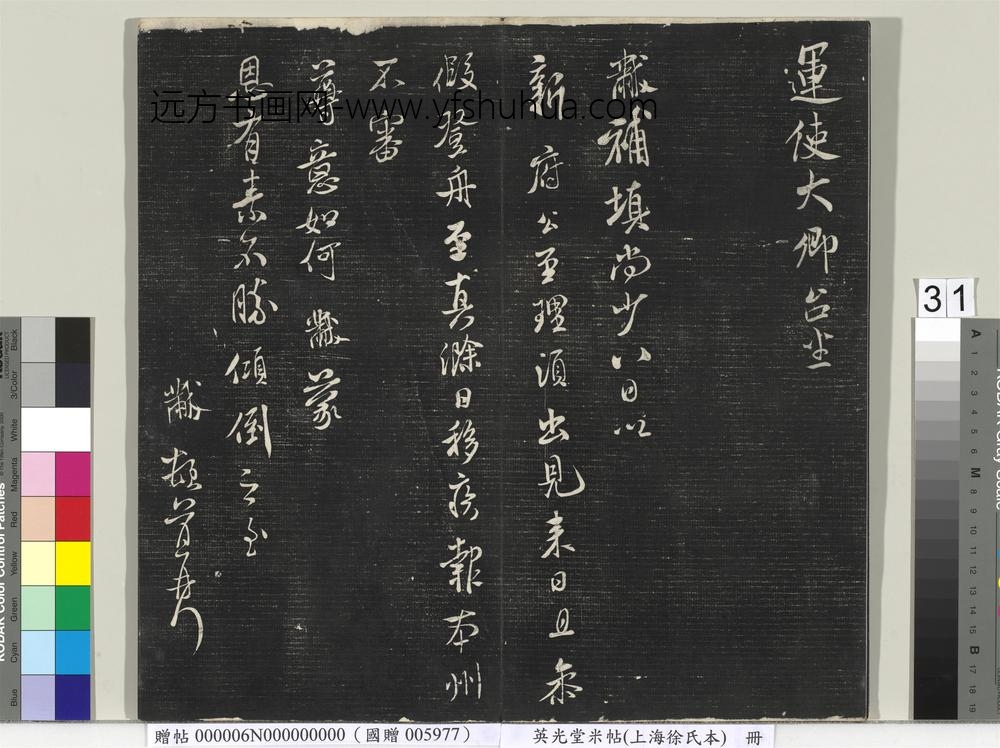 運使大卿台坐
黻補填尚少八日以
新府公至理須出見來日且參
假登舟至真滁日移疾報本州
不審
尊意如何黻蒙
恩有素不勝傾倒之至
黻頓首再拜
远方书画网-www.yfshuhua.com
31
KODAK Color Control Patches
Blue
Cyan
Green
Yellow
Red
Magenta
White
3/Color
Black
A 1 2 3 4 5 6 M 8 9 10 11 12 13 14 15 B 17 18 19
贈帖 000006N000000000（國贈 005977）
英光堂米帖(上海徐氏本) 冊